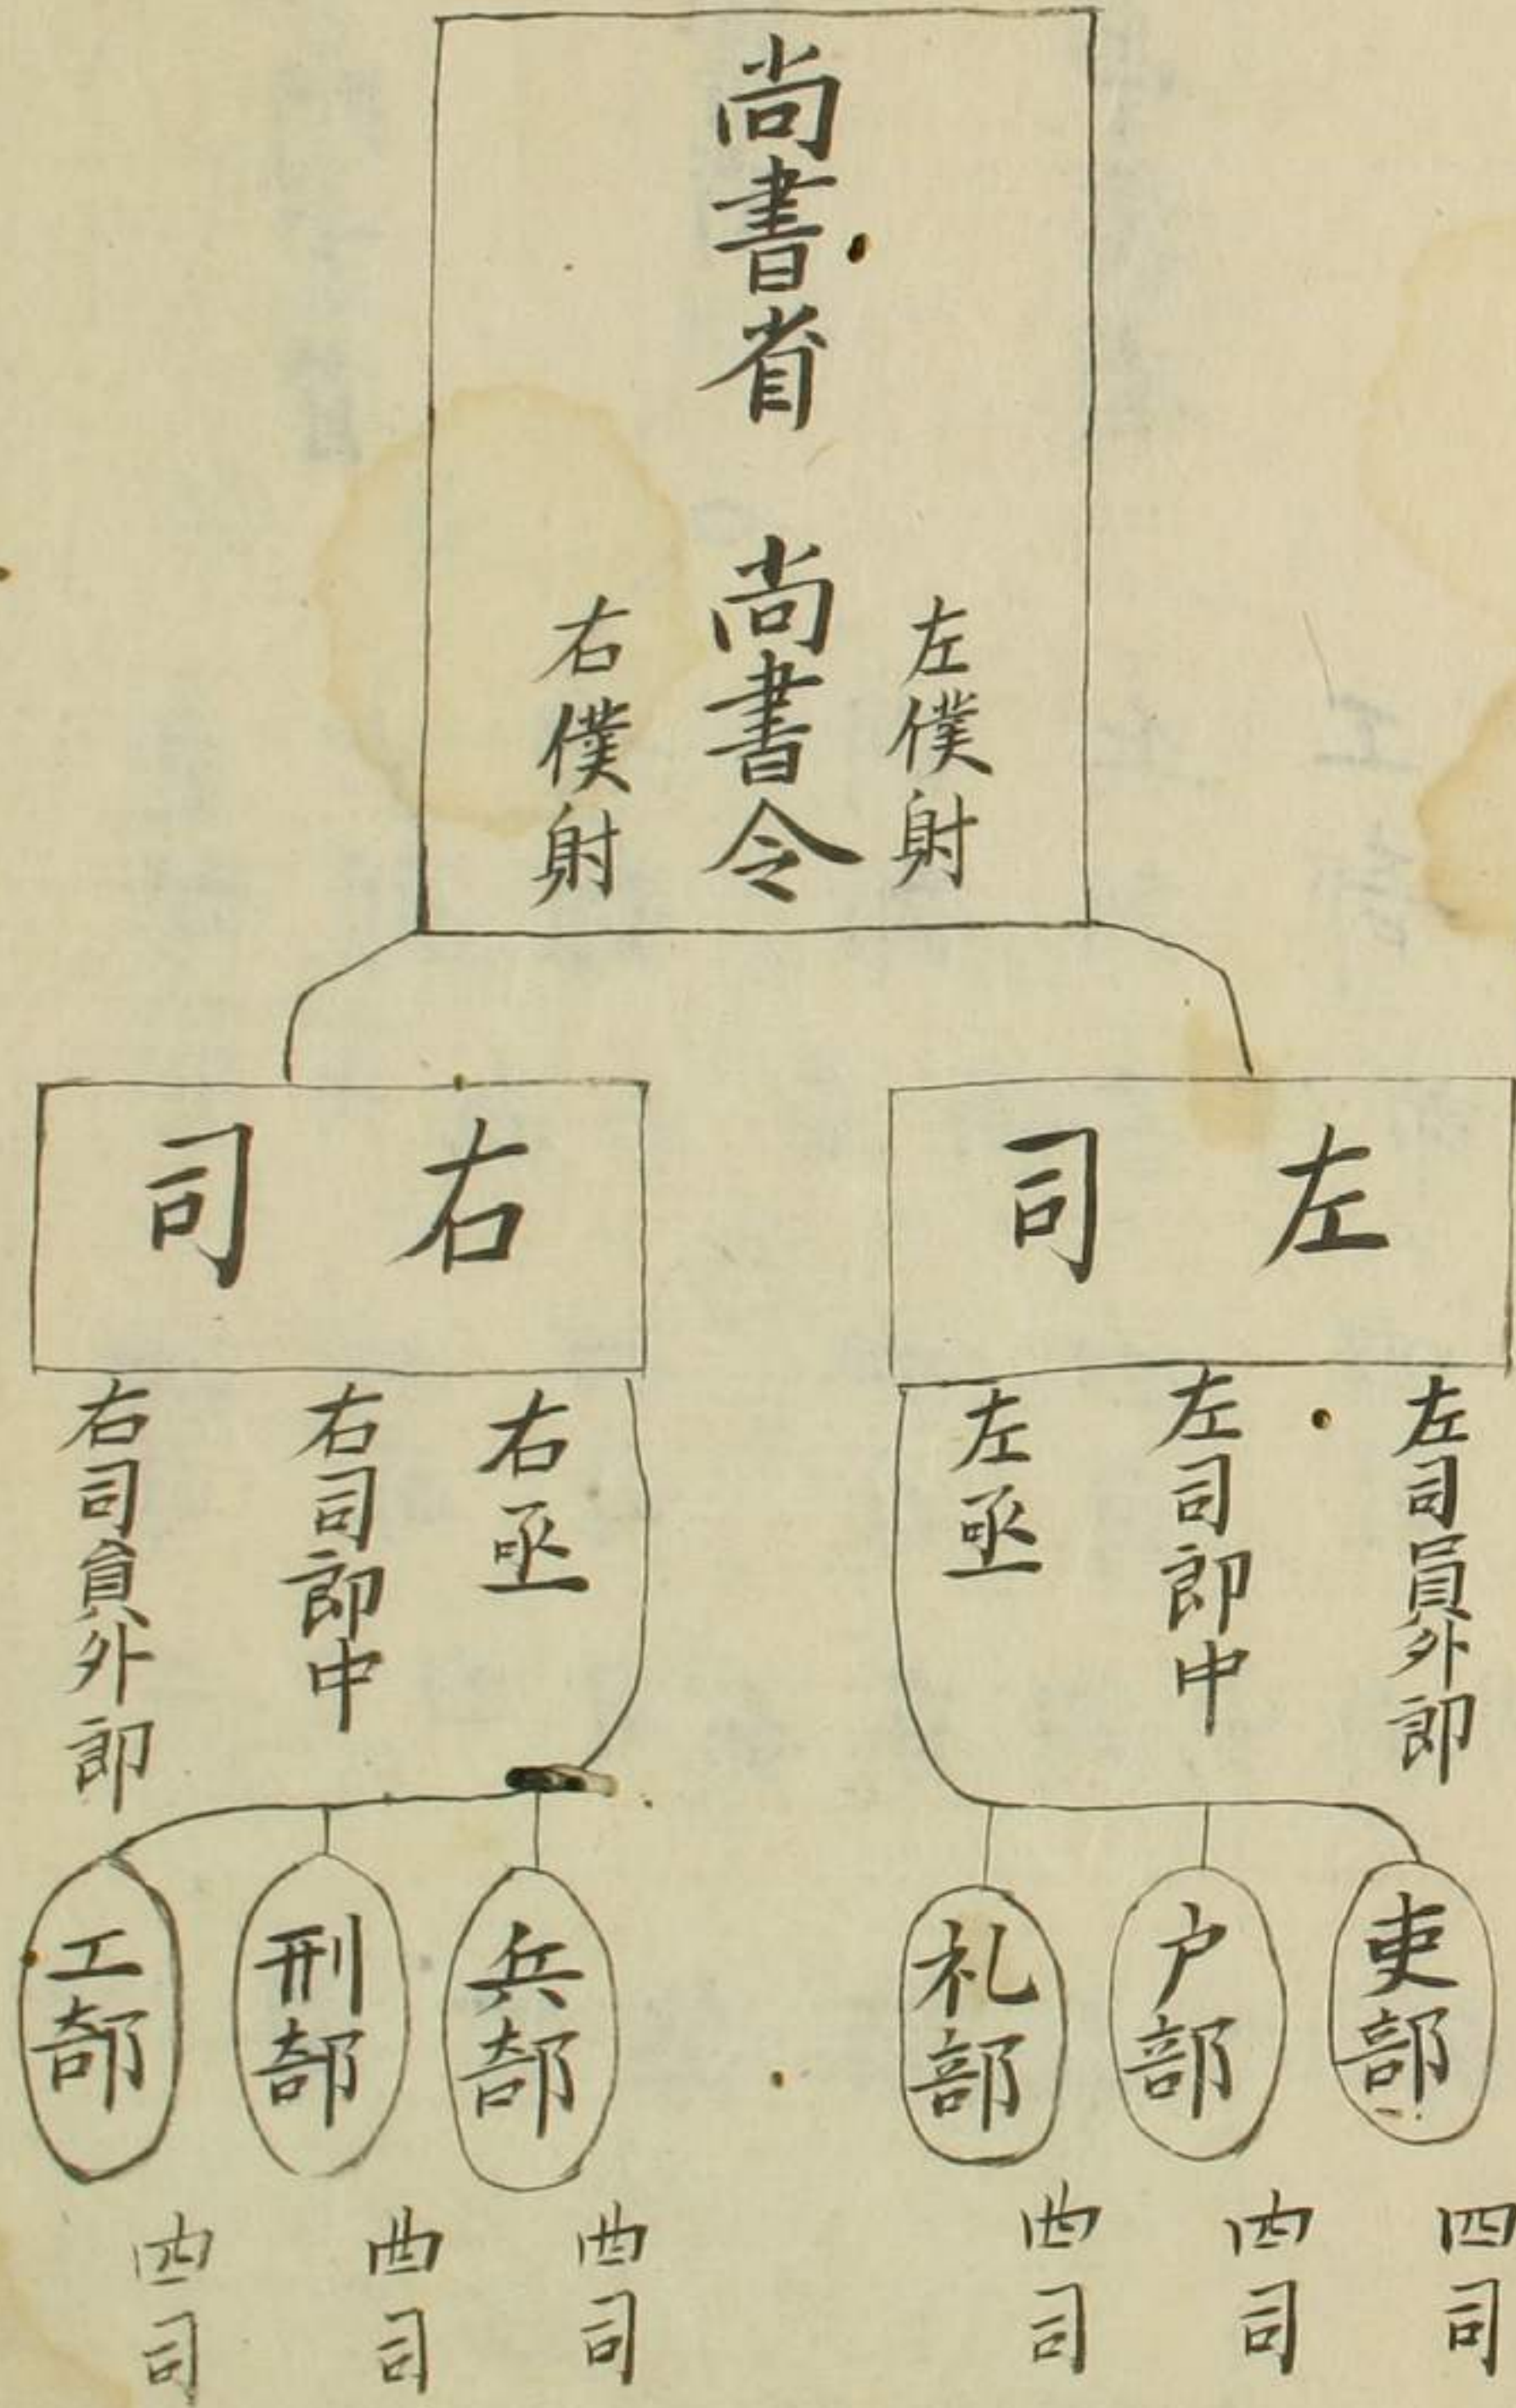 尚書省 尚書令
左僕射
右僕射
左司
右司
左司員外郎
左司郎中
左丞
右丞
右司郎中
右司員外郎
吏部
户部
礼部
兵部
刑部
工部
四司
四司
四司
四司
四司
四司